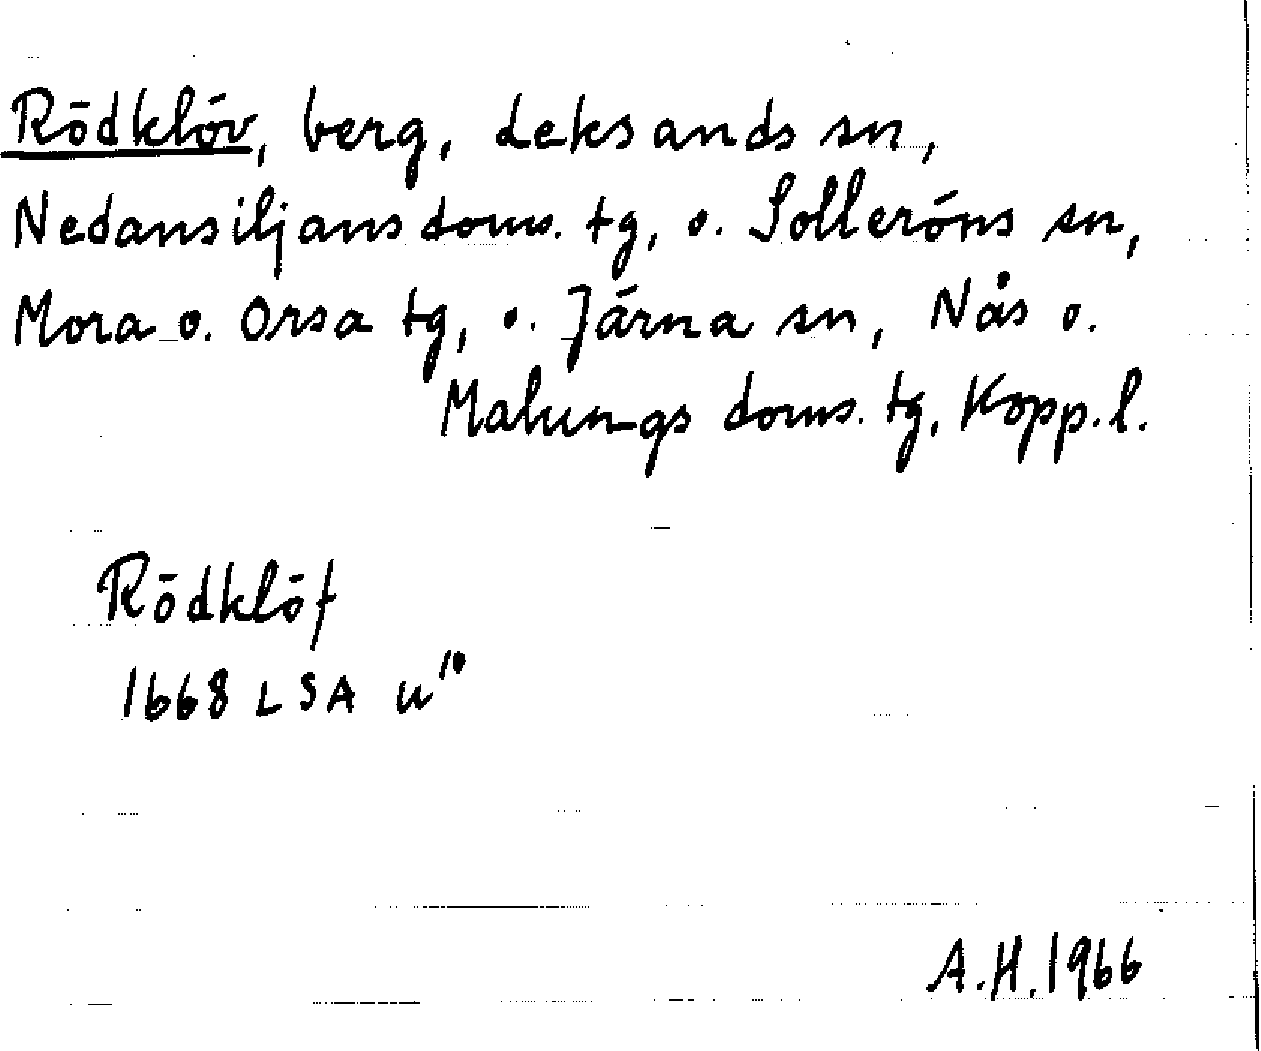 Rödklöv, berg, Leksands sn,
Nedansiljans doms. tg, o. Solleröns sn,
Mora o. Orsa tg, o. Järna sn, Nås o.
Malungs doms. tg, Kopp. l.
Rödklöf
1668 LSA u¹⁰
A.H. 1966